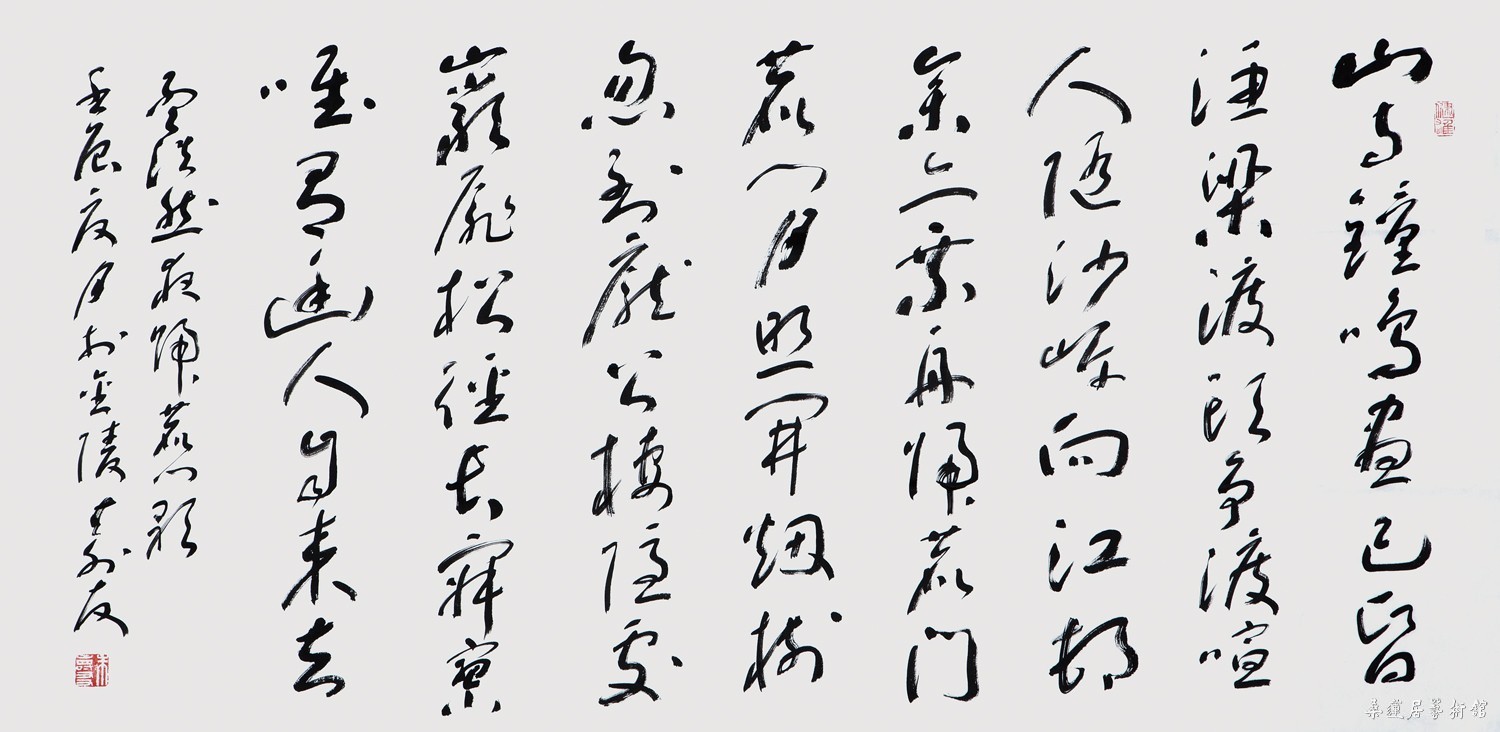 山寺鐘鳴晝已昏
漁梁渡頭爭渡喧
人隨沙岸向江村
余亦乘舟歸鹿門
鹿門月照開煙樹
忽到龐公棲隱處
巖扉松徑長寂寥
唯有幽人自來去
孟浩然夜歸鹿門歌
壬辰夏月於金陵朱壽友
朱壽友
桑蓮居藝術館